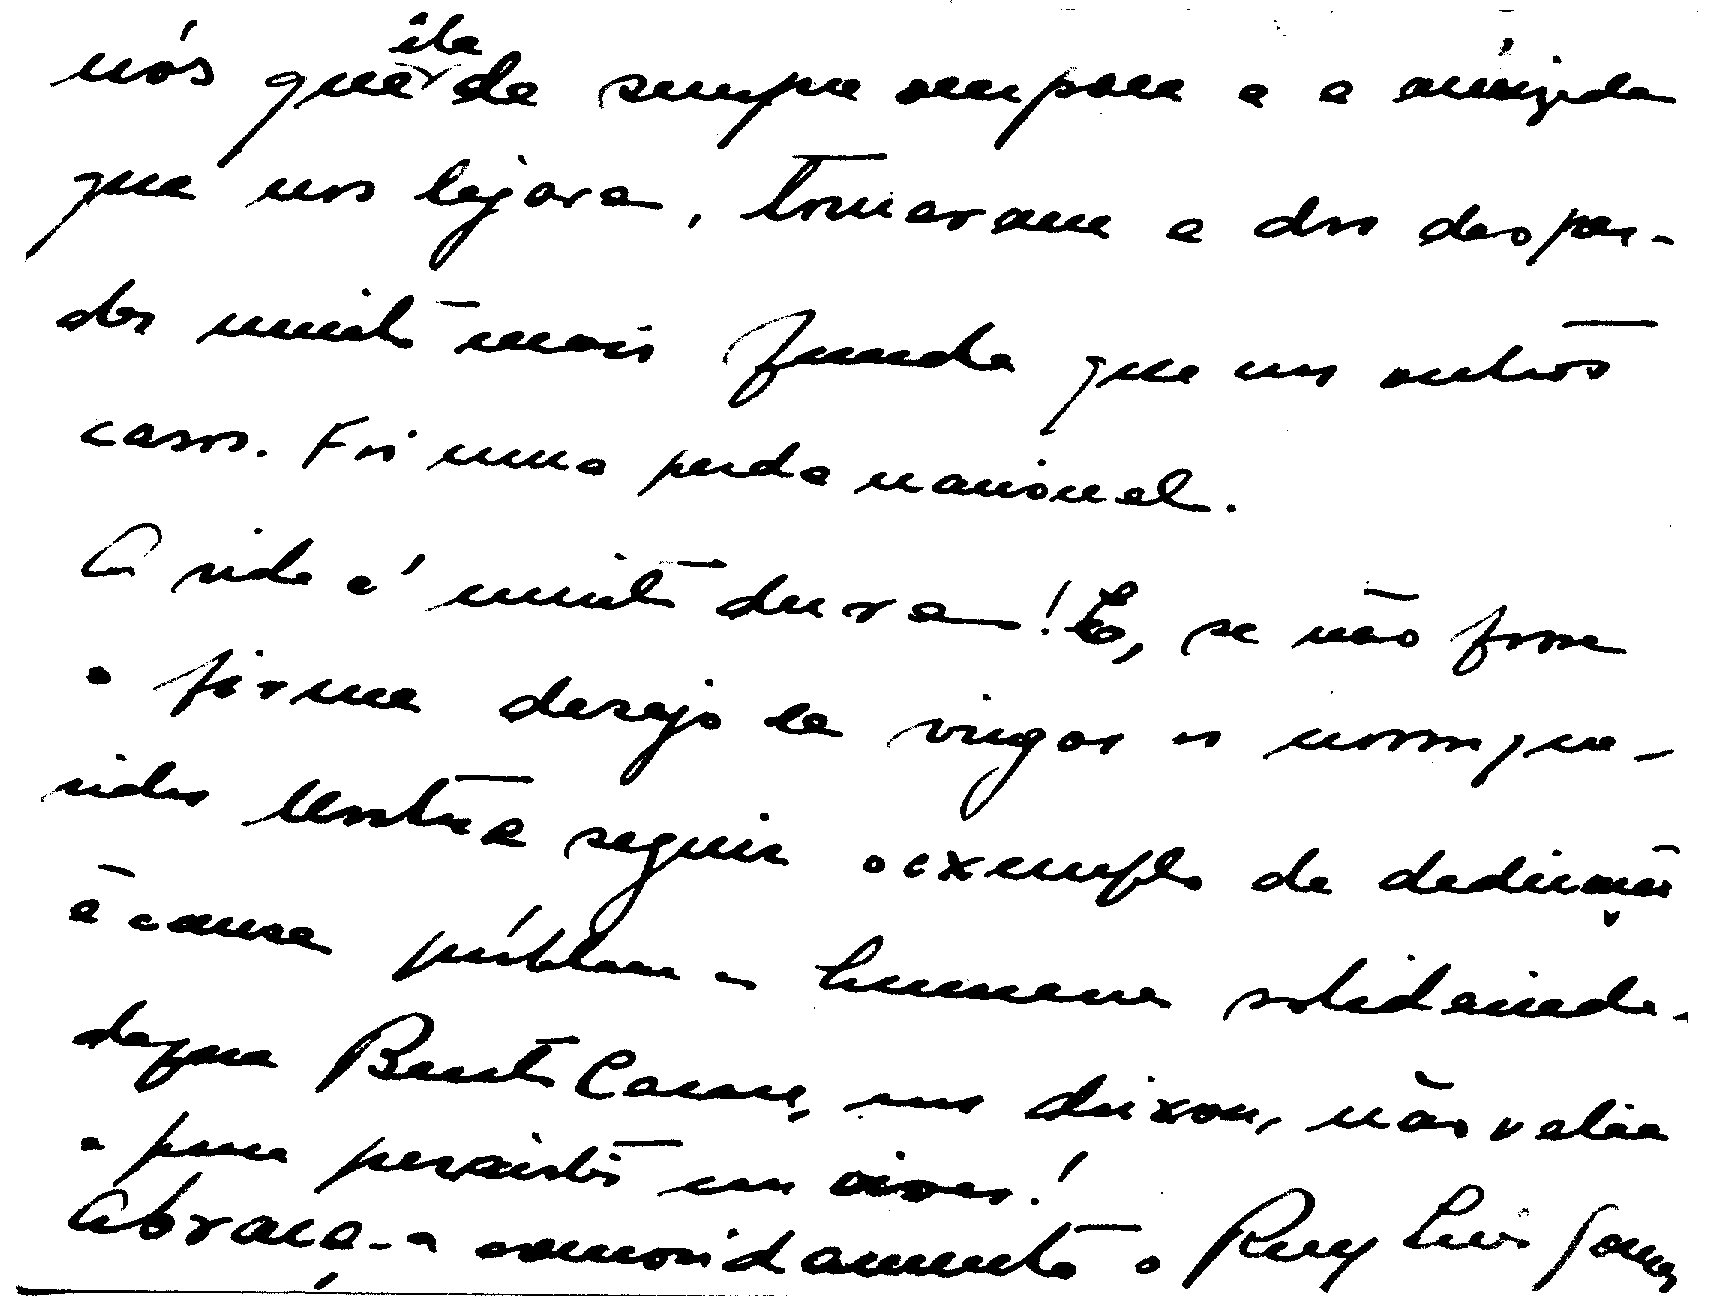 nós que ela
de sempre ampara e a amizade
que nos ligava, tornaram a dor das
dos muito mais funda que nos outros
casos. Foi uma perda nacional.
A vida é muito dura! E, se não fosse
o firme desejo de vingar os nossos que-
ridos mortos e seguir o exemplo de dedicação
à causa pública e humana solidarieda-
de que Bento Caraça, nos deixou, não valia
a pena persistir em viver!
Abraça-a comovidamente o Ruy Luís Gomes